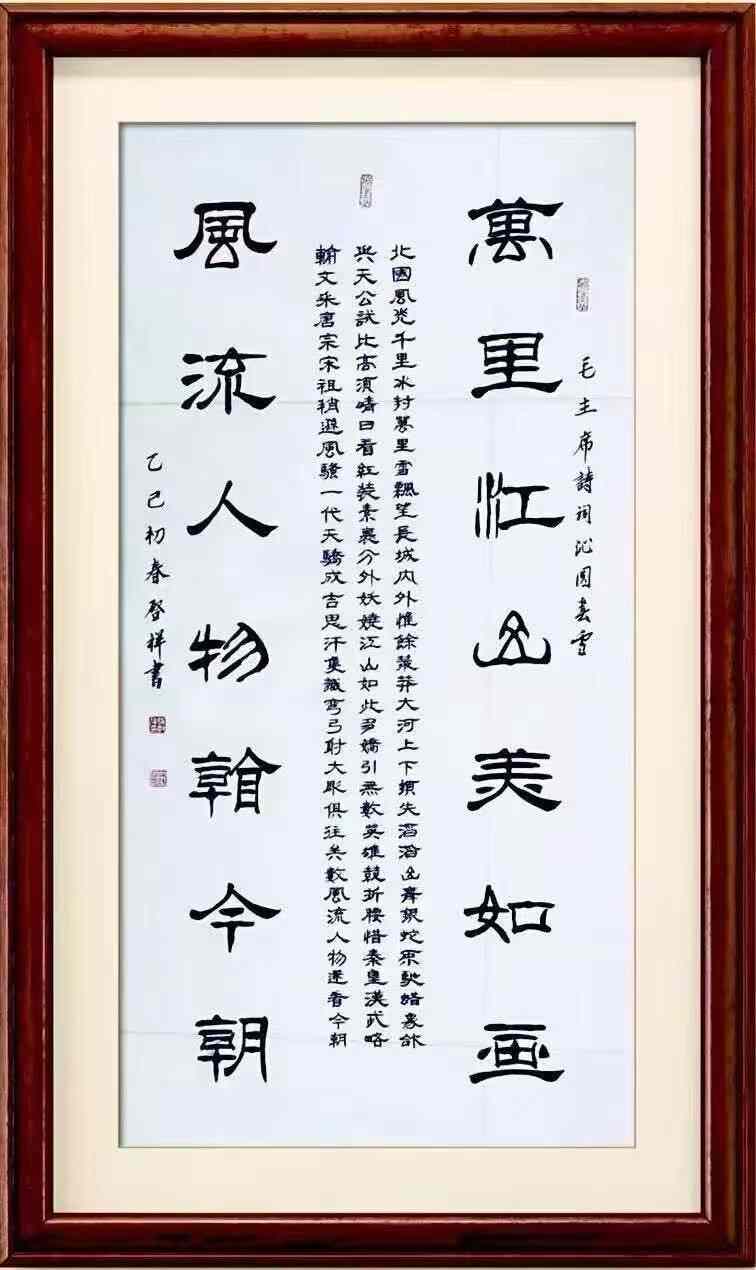 萬里江山美如画
毛主席詩词沁園春雪
北國風光千里冰封萬里雪飄望長城内外惟餘莽莽大河上下頓失滔滔山舞銀蛇原馳蜡象欲
與天公試比高須晴日看紅裝素裹分外妖嬈江山如此多嬌引無數英雄競折腰惜秦皇漢武略
輸文采唐宗宋祖稍遜風騷一代天驕成吉思汗隻識彎弓射大雕俱往矣數風流人物還看今朝
風流人物韻今朝
乙巳初春啓祥書